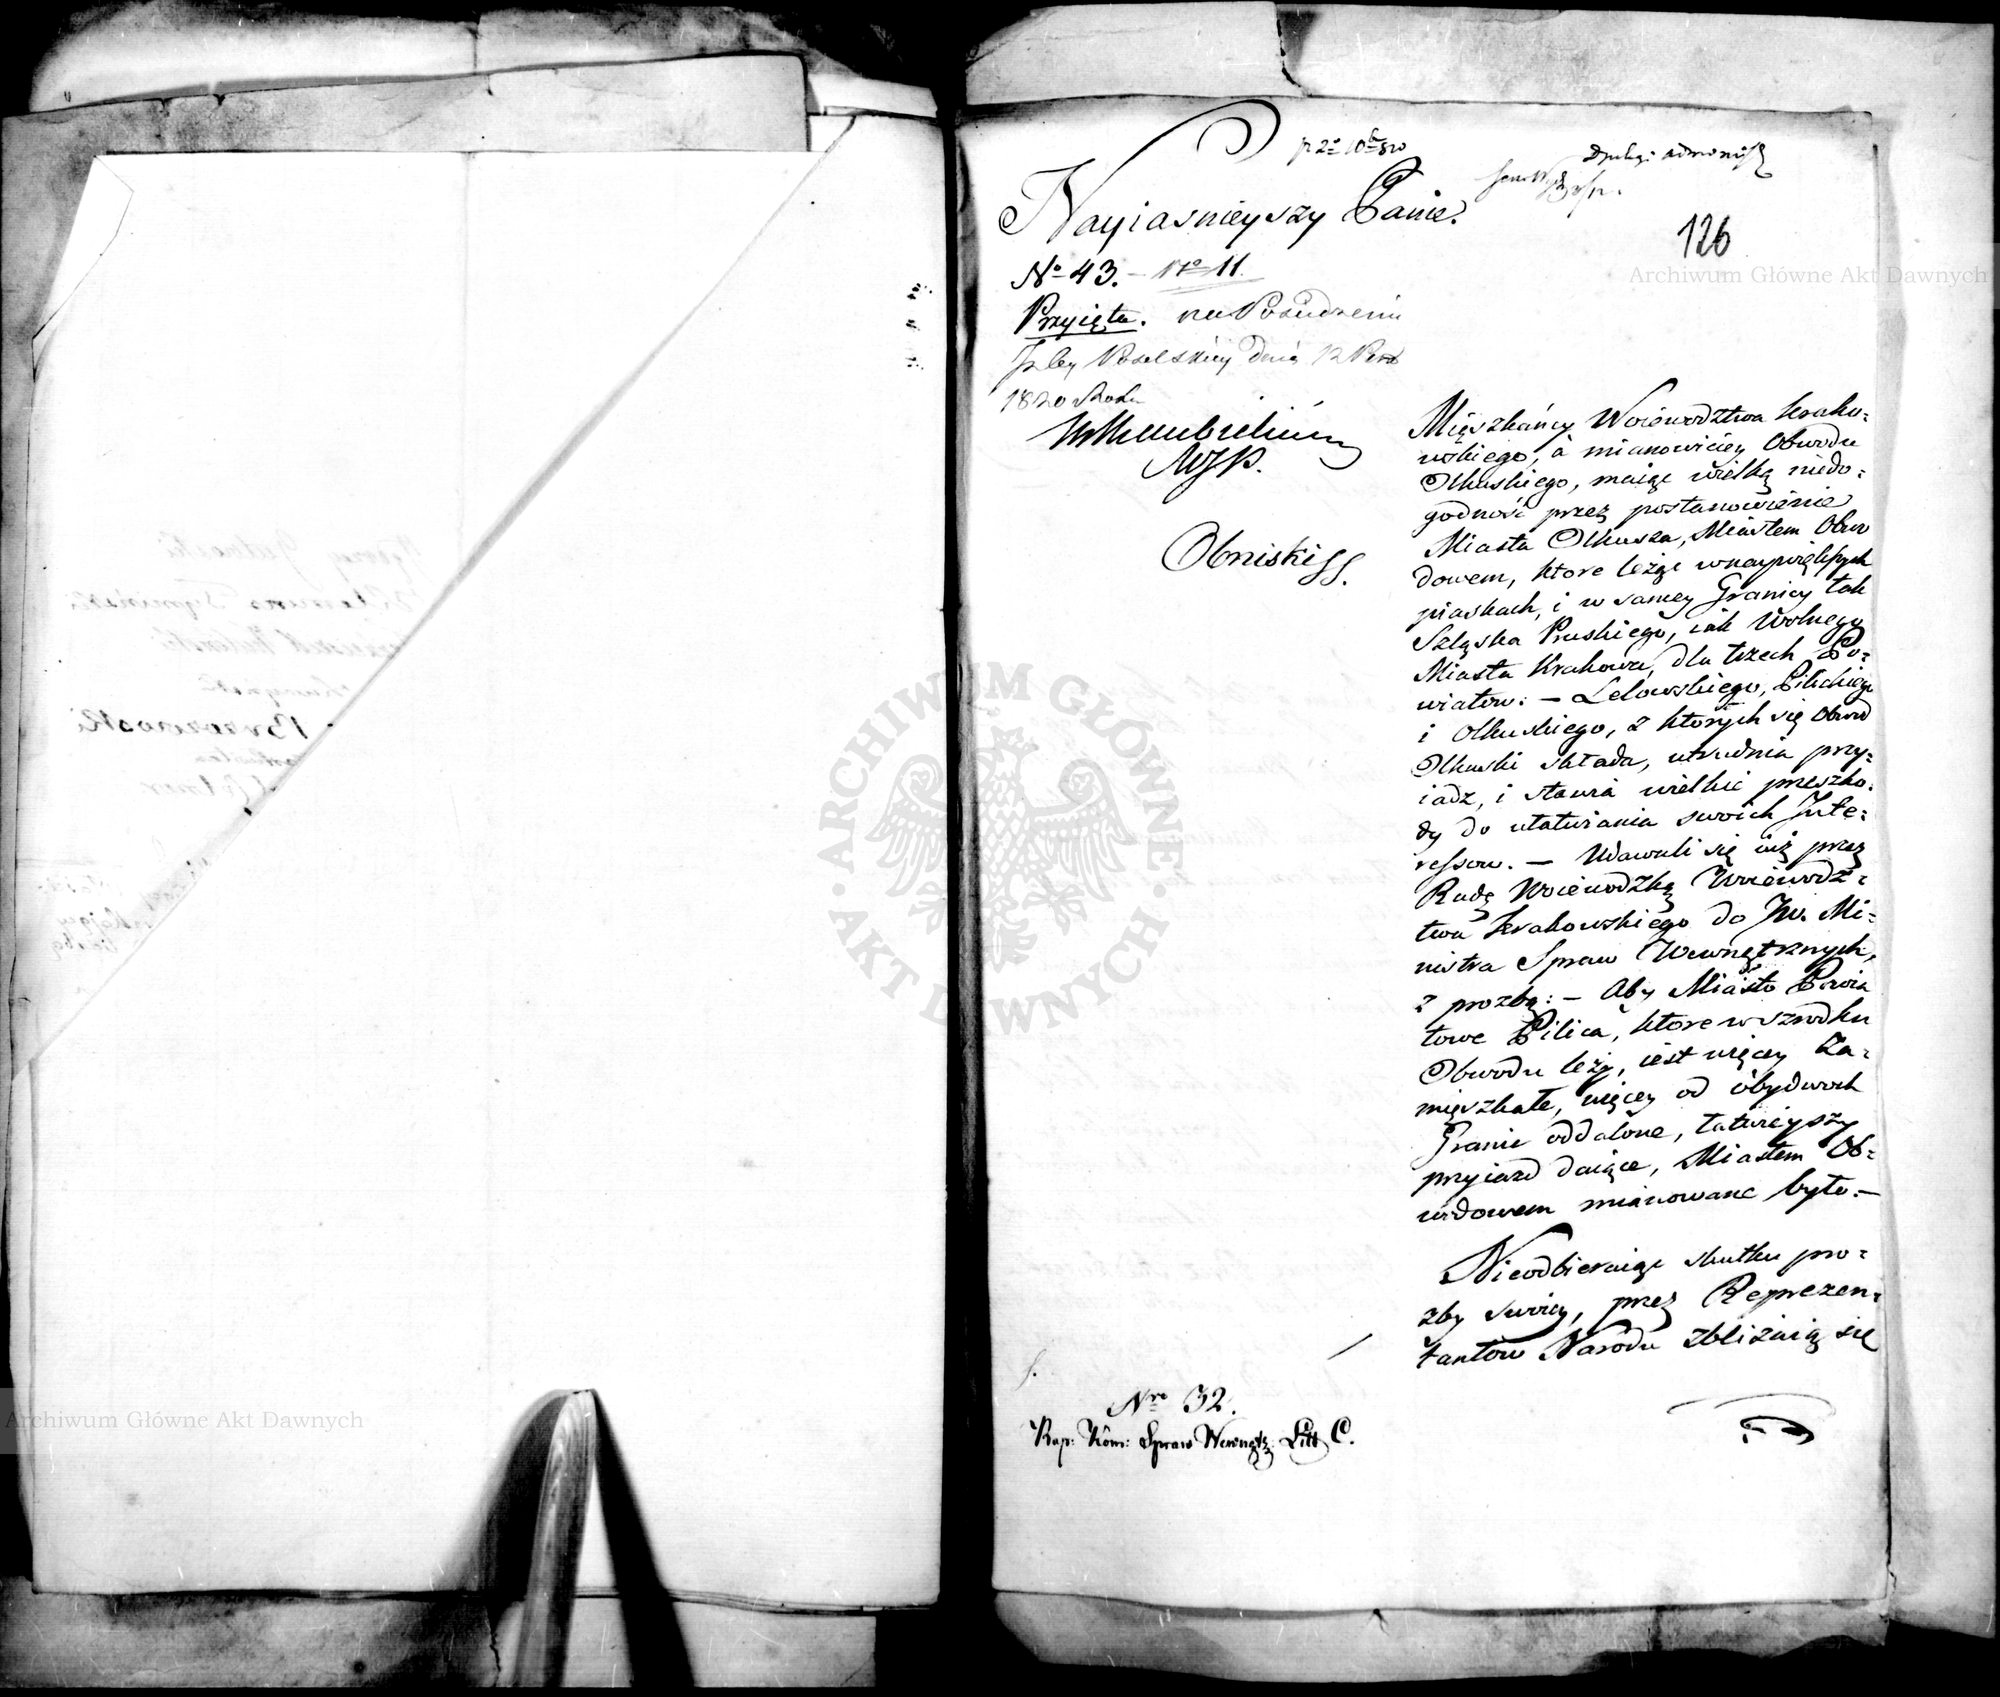 Nayiasnieyszy Panie.
126
Archiwum Główne Akt Dawnych
No 43. – No 11
Przyięta. na Posiedzeniu
Izby Poselskiey dnia 12
1820 Roku
Obniski
Mięszkańcy Woiewodztwa Krako-
wskiego, a mianowiciey Obwodu
Olkuskiego, maiąc wielką niedo-
godność przez postanowienie
Miasta Olkusza, Miastem Obwo
dowem, ktore leżąc w naywiększych
piaskach, i w samey Granicy tak
Szląska Pruskiego, iak Wolnego
Miasta Krakowa, dla trzech Po-
wiatow: – Lelowskiego, Pilickiego
i Olkuskiego, z ktorych się Obwod
Olkuski składa, utrudnia przy-
iazd, i stawia wielkie przeszko-
dy do ułatwiania swoich Inte-
ressow. – Udawali się iuż przez
Radę Woiewodzką Woiewodz-
twa Krakowskiego do JW. Mi-
nistra Spraw Wewnętrznych,
z prozbą: – Aby Miasto Powia
towe Pilica, ktore w szrodku
Obwodu leży, iest więcey Za-
mięszkałe, więcey od obydwoch
Granic oddalone, łatwieyszy
przyiazd daiące, Miastem Ob-
wodowem mianowane było. –
Nieodbieraiąc skutku pro-
zby swoiey, przez Reprezen-
tantow Narodu zbliżaią się
Nro 32.
Rap: Kom: Spraw Wewnętz: Litt C.
ARCHIWUM GŁÓWNE AKT DAWNYCH
Archiwum Główne Akt Dawnych